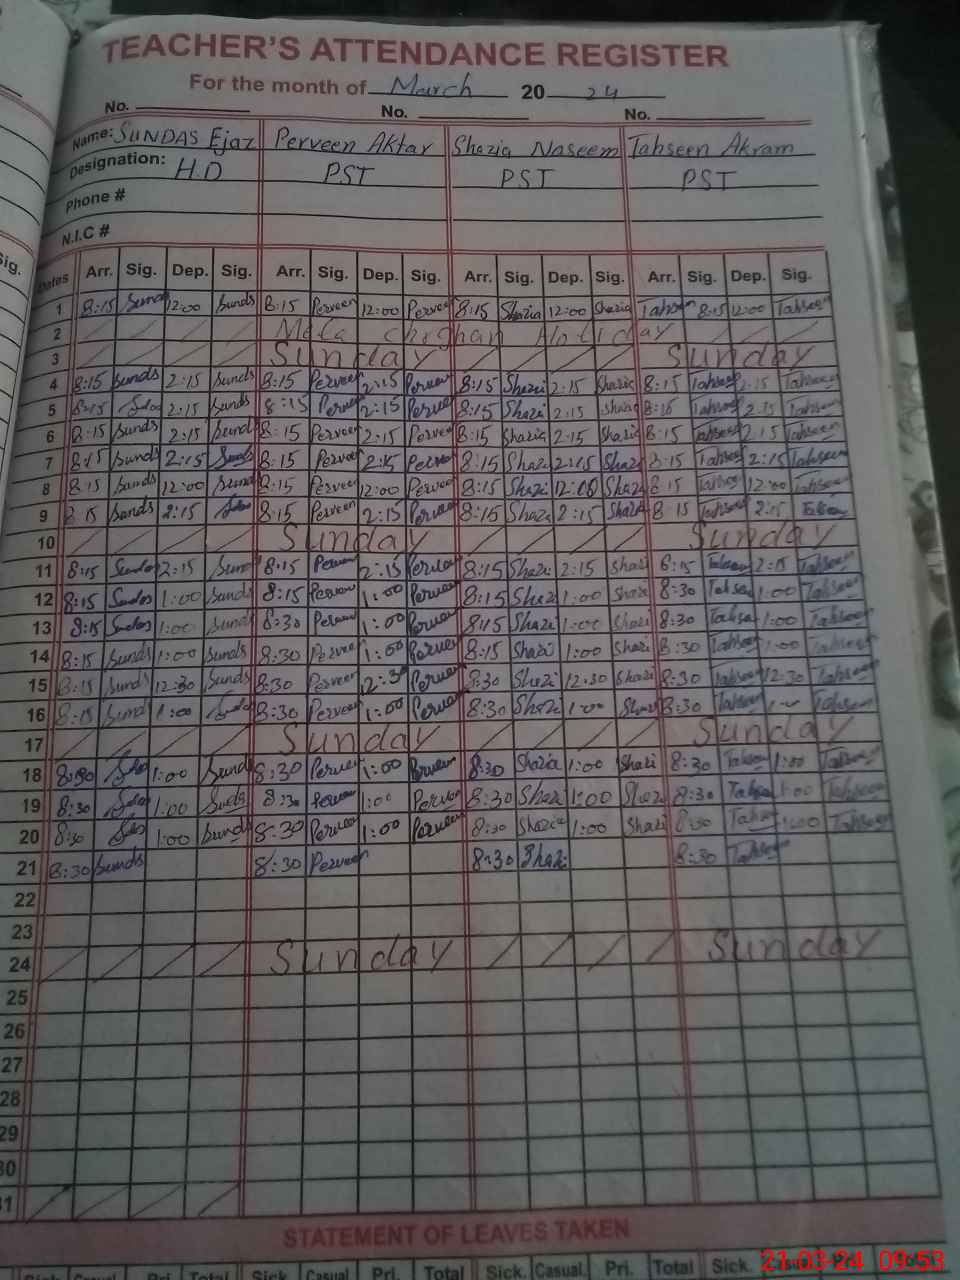 TEACHER'S ATTENDANCE REGISTER
For the month of March 20 24
No. No. No.
Name: SUNDAS Ejaz Perveen Aktar Shazia Naseem Tahseen Akram
Designation: H.D PST PST PST
Phone #
N.I.C #
Dates Arr. Sig. Dep. Sig. Arr. Sig. Dep. Sig. Arr. Sig. Dep. Sig. Arr. Sig. Dep. Sig.
1 8:15 Sunds 12:00 Sunds 8:15 Perveen 12:00 Perveen 8:15 Shazia 12:00 Shazia Tahseen 8:15 12:00 Tahseen
2 Mela Holiday
3 Sunday Sunday
4 8:15 Sunds 2:15 Sunds 8:15 Perveen 2:15 Perveen 8:15 Shazi 2:15 Shazia 8:15 Tahseen 2:15 Tahseen
5 8:15 2:15 Sunds 8:15 Perveen 2:15 Perveen 8:15 Shazi 2:15 Shazia 8:15 Tahseen 2:15 Tahseen
6 8:15 Sunds 2:15 Sunds 8:15 Perveen 2:15 Perveen 8:15 Shazia 2:15 Shazia 8:15 Tahseen 2:15 Tahseen
7 8:15 Sunds 2:15 Sunds 8:15 Perveen 2:15 Perveen 8:15 Shazi 2:15 Shazi 8:15 Tahseen 2:15 Tahseen
8 8:15 Sunds 12:00 Sunds 8:15 Perveen 12:00 Perveen 8:15 Shazi 12:00 Shazi 8:15 Tahseen 12:00 Tahseen
9 8:15 Sunds 2:15 8:15 Perveen 2:15 Perveen 8:15 Shazi 2:15 Shazi 8:15 Tahseen 2:15 Tahseen
10 Sunday Sunday
11 8:15 Sundas 2:15 Sunds 8:15 Perveen 2:15 Perveen 8:15 Shazi 2:15 Shazi 8:15 Tahseen 2:15 Tahseen
12 8:15 Sundas 1:00 Sunds 8:15 Perveen 1:00 Perveen 8:15 Shazi 1:00 Shazi 8:30 Tahseen 1:00 Tahseen
13 8:15 Sundas 1:00 Sunds 8:30 Perveen 1:00 Perveen 8:15 Shazi 1:00 Shazi 8:30 Tahseen 1:00 Tahseen
14 8:15 Sunds 1:00 Sunds 8:30 Perveen 1:00 Perveen 8:15 Shazi 1:00 Shazi 8:30 Tahseen 1:00 Tahseen
15 8:15 Sunds 12:30 Sunds 8:30 Perveen 12:30 Perveen 8:30 Shazi 12:30 Shazi 8:30 Tahseen 12:30 Tahseen
16 8:15 Sunds 1:00 8:30 Perveen 1:00 Perveen 8:30 Shazi 1:00 Shazi 8:30 Tahseen 1:00 Tahseen
17 Sunday Sunday
18 8:30 1:00 Sunds 8:30 Perveen 1:00 Perveen 8:30 Shazia 1:00 Shazi 8:30 Tahseen 1:00 Tahseen
19 8:30 1:00 Sunds 8:30 Perveen 1:00 Perveen 8:30 Shazi 1:00 Shazi 8:30 Tahseen 1:00 Tahseen
20 8:30 1:00 Sunds 8:30 Perveen 1:00 Perveen 8:30 Shazia 1:00 Shazi 8:30 Tahseen 1:00 Tahseen
21 8:30 Sunds 8:30 Perveen 8:30 Shazi 8:30 Tahseen
22
23
24 Sunday Sunday
25
26
27
28
29
30
31
STATEMENT OF LEAVES TAKEN
Sick. Casual. Pri. Total Sick. Casual Pri. Total Sick. Casual. Pri. Total Sick.
21-03-24 09:53